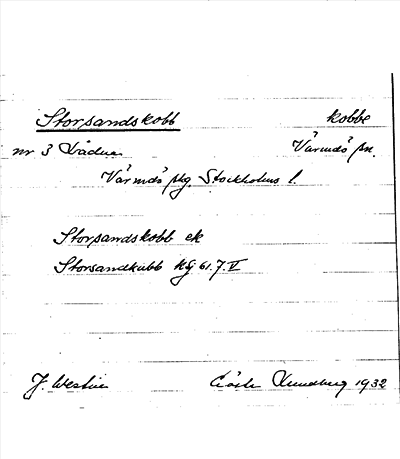 Storsandskobb kobbe
nr 3 Lådna Värmdö sn.
Värmdö skg. Stockholms l.
Storsandskobb ek
Storsandkubb Kg 61.7.II
J. Westin Gösta Lundberg 1932